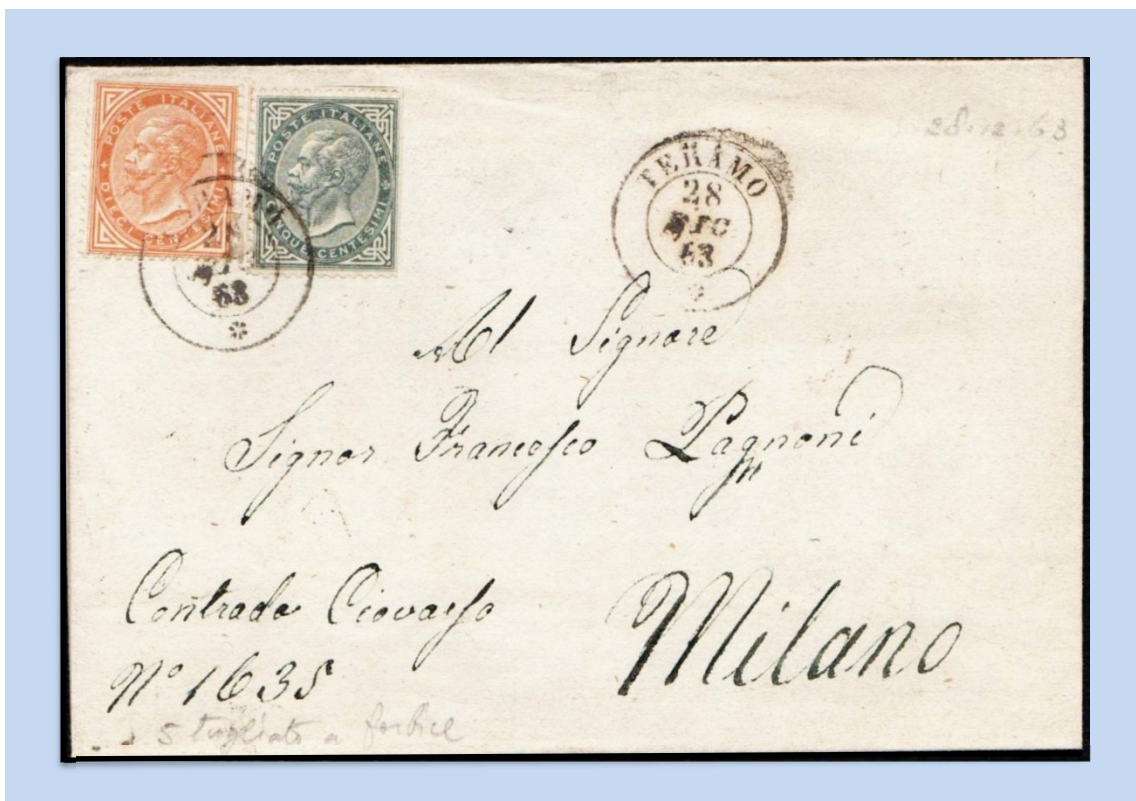 POSTE ITALIANE
DIECI CENTESIMI
POSTE ITALIANE
CINQUE CENTESIMI
28
68
TERAMO
28
DIC
63
28.12.63
Al Signore
Signor Francesco Pagnoni
Contrada Ciovasso
Nº 1635
Milano
5 tagliato a forbice